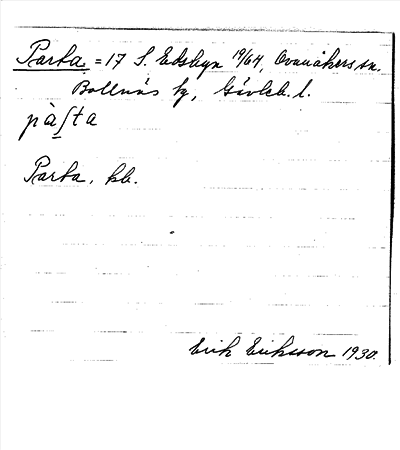 Parta = 17 S. Edsbyn 19/64, Ovanåkers sn.
Bollnäs kg, Gävleb. l.
pàʃta
Parta, kb.
Erik Eriksson 1930.